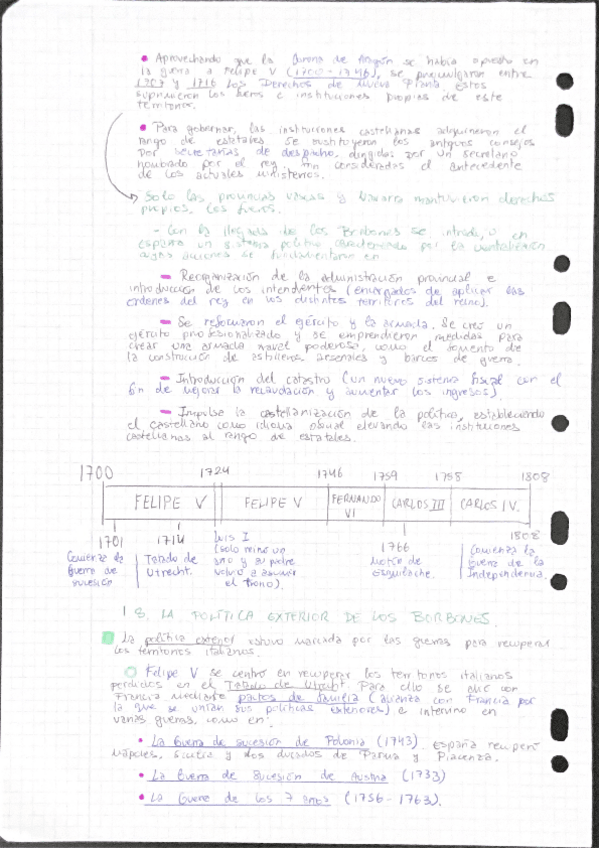 • Aprovechando que la Corona de Aragón se había opuesto en
la guerra a Felipe V (1700 - 1746), se promulgaron entre
1707 y 1716 los Decretos de Nueva Planta estos
suprimieron los fueros e instituciones propias de este
territorio.
• Para gobernar, las instituciones castellanas adquirieron el
rango de estatales. Se sustituyeron los antiguos consejos
por secretarías de despacho, dirigidas por un secretario
nombrado por el rey. Son consideradas el antecedente
de los actuales ministerios.
Solo las provincias vascas y Navarra mantuvieron derechos
propios, los fueros.
- Con la llegada de los Borbones se introdujo en
españa un sistema político caracterizado por la centralización
cuyas acciones se fundamentaron en
- Reorganización de la administración provincial e
introducción de los intendentes (encargados de aplicar las
ordenes del rey en los distintos territorios del reino).
- Se reformaron el ejército y la armada. Se creó un
ejército profesionalizado y se emprendieron medidas para
crear una armada naval poderosa, como el fomento de
la construcción de astilleros, arsenales y barcos de guerra.
- Introducción del catastro (un nuevo sistema fiscal con el
fin de mejorar la recaudación y aumentar los ingresos).
- Impulse la castellanización de la política, estableciendo
el castellano como idioma oficial elevando las instituciones
castellanas al rango de estatales.
1700 1724 1746 1759 1788 1808
FELIPE V FELIPE V FERNANDO VI CARLOS III CARLOS IV.
1701 1714 Luis I 1766 1808
Comienza la guerra de sucesión
Tratado de Utrecht.
(solo reinó un año y su padre volvió a asumir el trono).
Motín de Esquilache.
Comienza la Guerra de la Independencia.
1 8. LA POLÍTICA EXTERIOR DE LOS BORBONES.
La política exterior estuvo marcada por las guerras para recuperar
los territorios italianos.
Felipe V se centró en recuperar los territorios italianos
perdidos en el Tratado de Utrecht. Para ello se alió con
Francia mediante pactos de familia (alianza con Francia por
la que se unían sus políticas exteriores) e intervino en
varias guerras, como en:
• La Guerra de sucesión de Polonia (1743). España recuperó
Nápoles, Sicilia y dos ducados de Parma y Piacenza.
• La Guerra de Sucesión de Austria (1733)
• La Guerra de los 7 años (1756 - 1763).